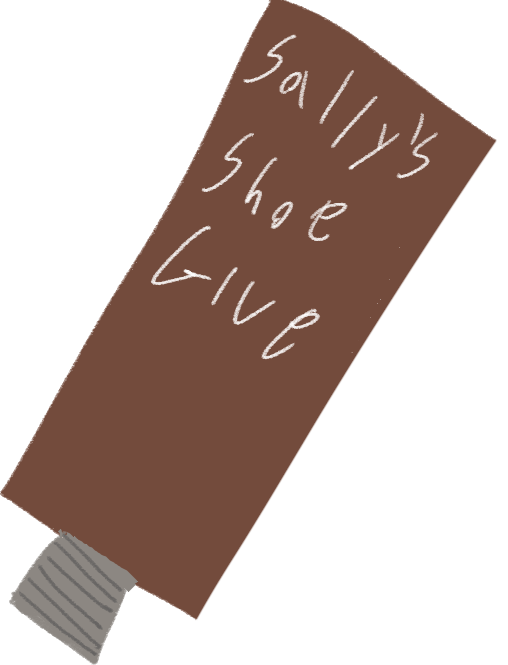 Sally's
Shoe
Give